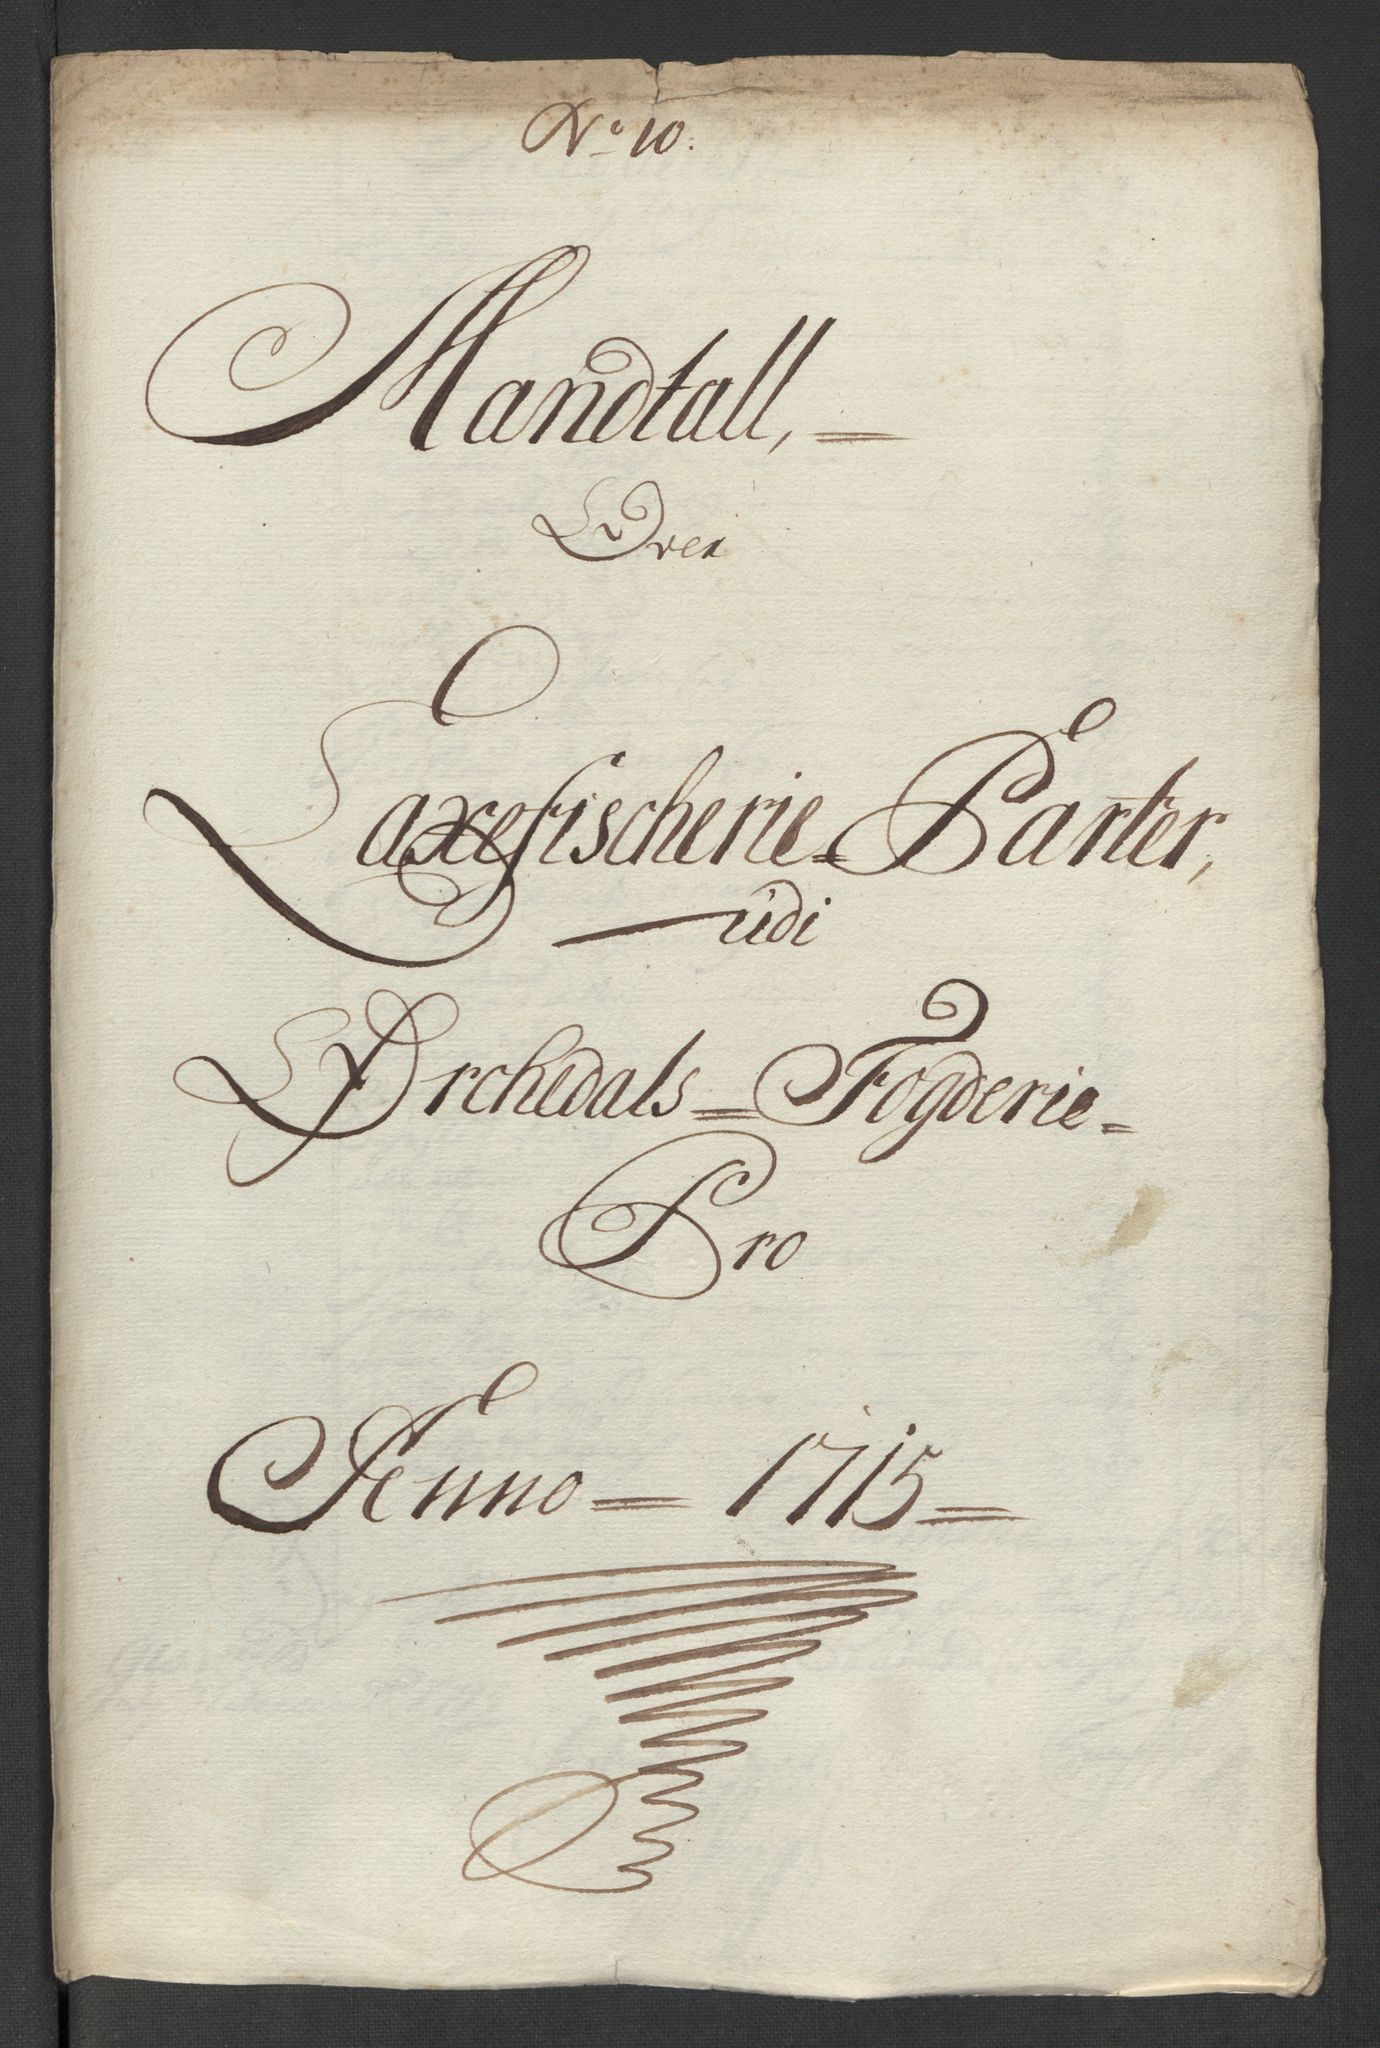 No 10.
Mandtall, =
Over
Laxefischerie = Parter,
udi
Ørchedals = Fogderie =
Pro
Anno = 1715 =